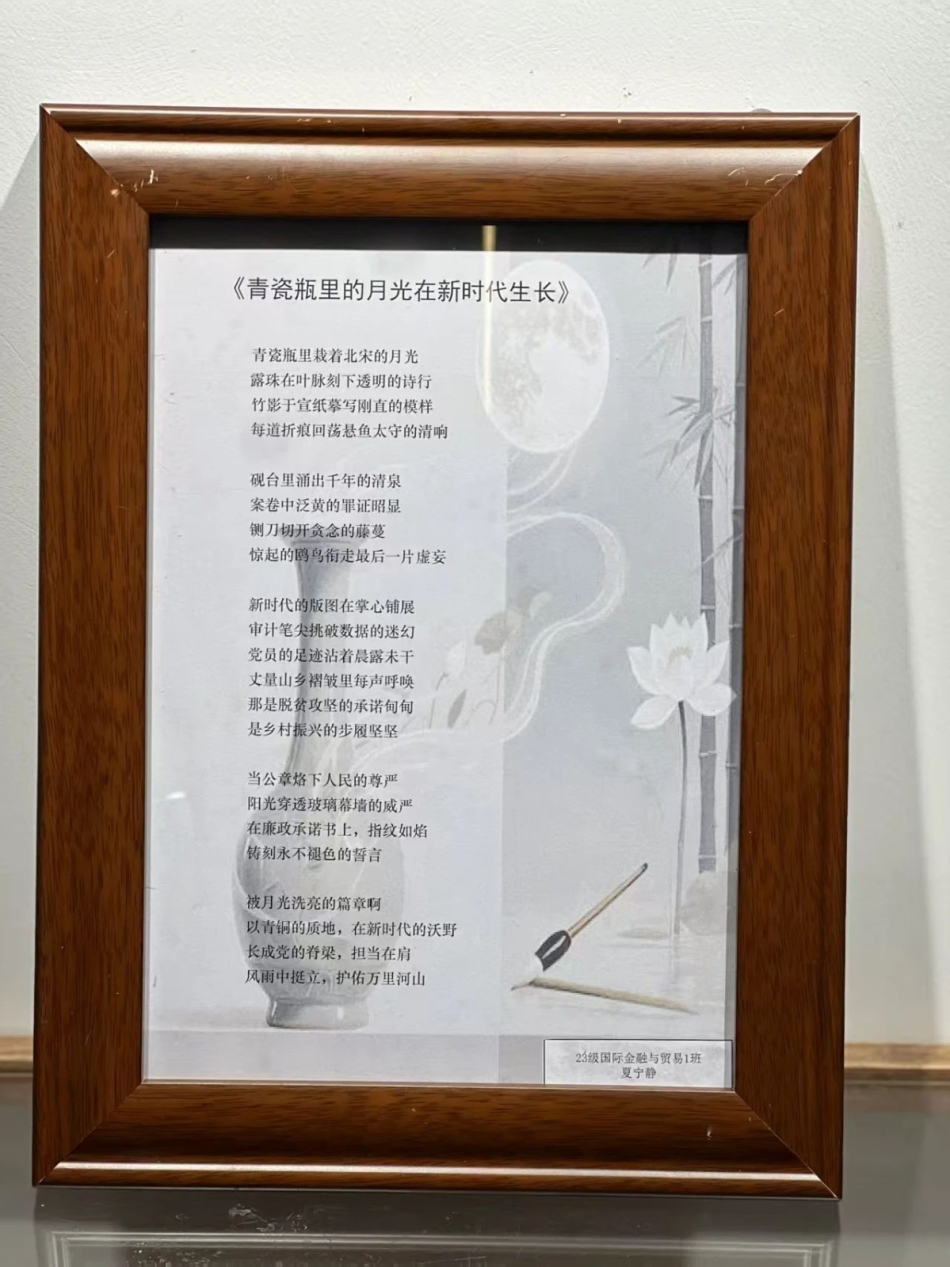 《青瓷瓶里的月光在新时代生长》
青瓷瓶里栽着北宋的月光
露珠在叶脉刻下透明的诗行
竹影于宣纸摹写刚直的模样
每道折痕回荡悬鱼太守的清响
砚台里涌出千年的清泉
案卷中泛黄的罪证昭显
铡刀切开贪念的藤蔓
惊起的鸥鸟衔走最后一片虚妄
新时代的版图在掌心铺展
审计笔尖挑破数据的迷幻
党员的足迹沾着晨露未干
丈量山乡褶皱里每声呼唤
那是脱贫攻坚的承诺旬旬
是乡村振兴的步履坚坚
当公章烙下人民的尊严
阳光穿透玻璃幕墙的威严
在廉政承诺书上，指纹如焰
铸刻永不褪色的誓言
被月光洗亮的篇章啊
以青铜的质地，在新时代的沃野
长成党的脊梁，担当在肩
风雨中挺立，护佑万里河山
23级国际金融与贸易1班
夏宁静